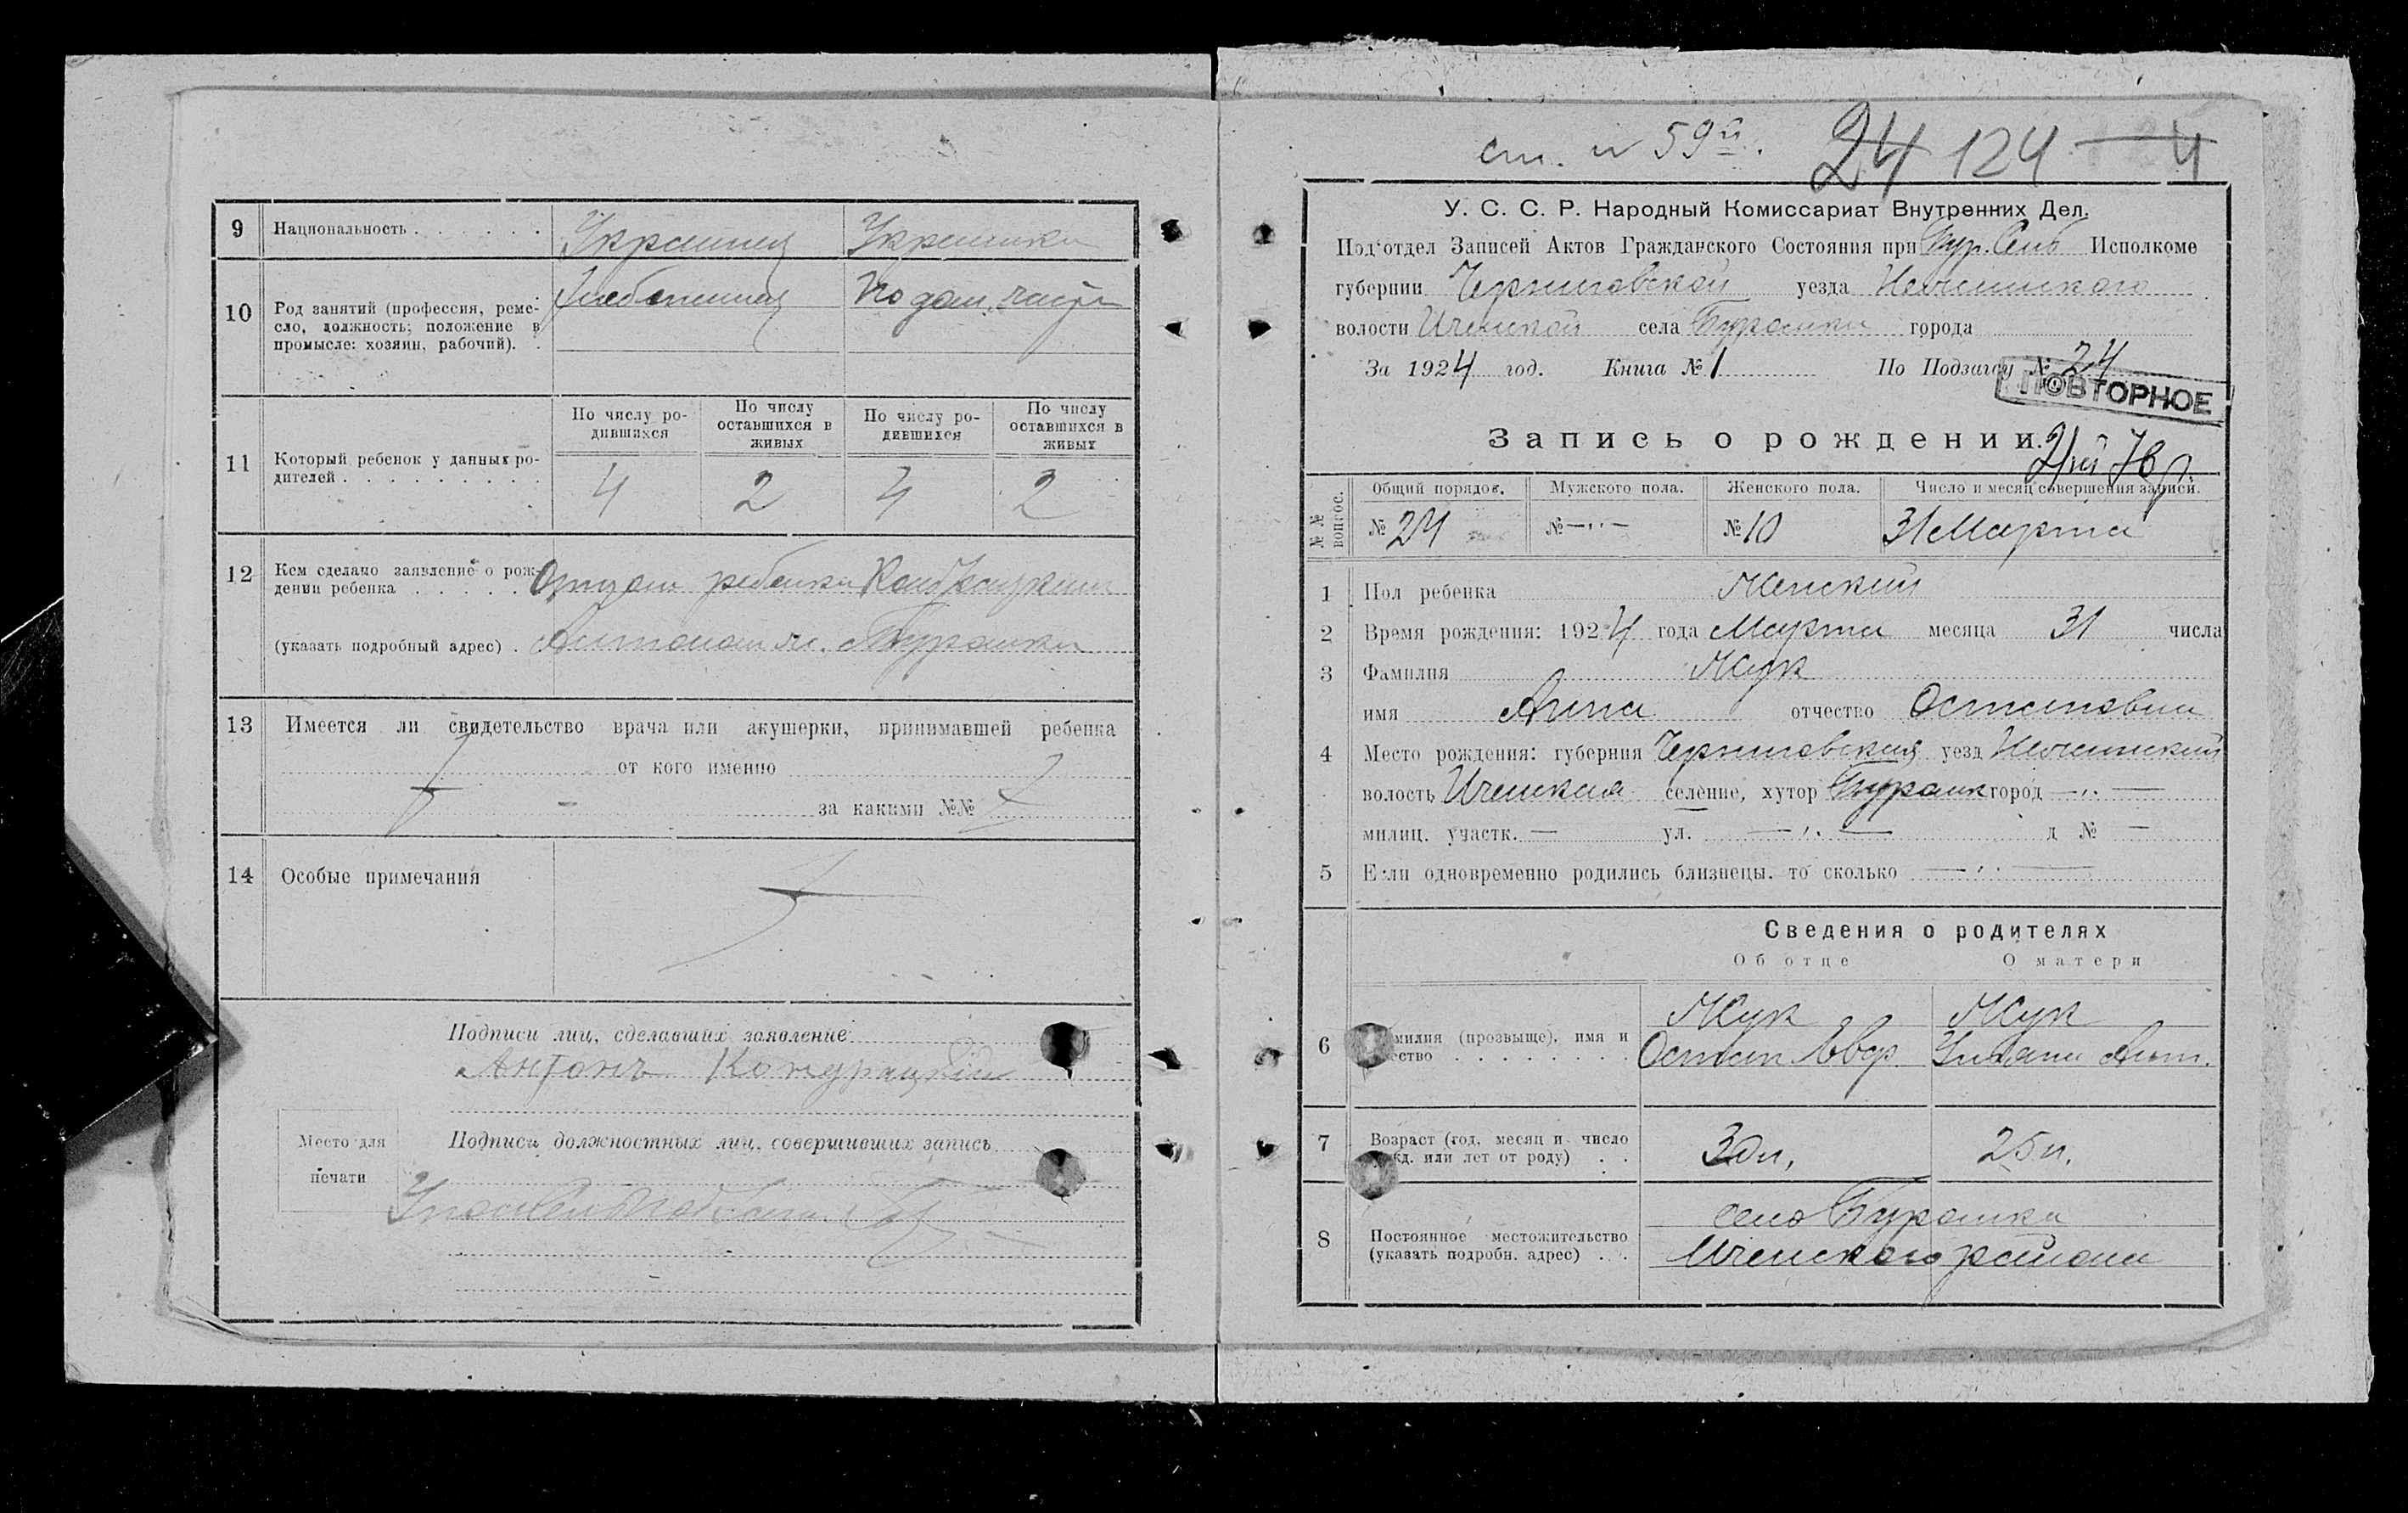 9 Национальность . . . . . . Украинец Украинка
10 Род занятий (профессия, реме-
сло, должность; положение в
промысле: хозяин, рабочий). . Хлебопашец По дом. части
11 Который ребенок у данных ро-
дителей . . . . . . . . .
По числу ро-
дившихся
По числу
оставшихся в
живых
По числу ро-
дившихся
По числу
оставшихся в
живых
4 2 4 2
12 Кем сделано заявление о рож-
дении ребенка . . . . . Отцом ребенка Кондрацким
(указать подробный адрес) . Антоном м. Буромки
13 Имеется ли свидетельство врача или акушерки, принимавшей ребенка
от кого именно
за какими №№
14 Особые примечания
Подписи лиц, сделавших заявление:
Антонъ Кондрацкий
Место для
печати
Подписи должностных лиц, совершивших запись
ст. № 59й. 24 124 — 4
У. С. С. Р. Народный Комиссариат Внутренних Дел.
Под'отдел Записей Актов Гражданского Состояния при Бур. Сель Исполкоме
губернии Черниговской уезда Нежинского
волости Иченской села Буромки города
За 1924 год. Книга № 1 По Подзагсу № 24
ПОВТОРНОЕ
Запись о рождении.
2ый экз.
№№ вопрос.
Общий порядок. Мужского пола. Женского пола. Число и месяц совершения записи.
№ 24 № —"— № 10 31 Марта
1 Пол ребенка Женский
2 Время рождения: 1924 года Марта месяца 31 числа
3 Фамилия Жук
имя Анна отчество Остаповна
4 Место рождения: губерния Черниговская уезд Нежинский
волость Иченская селение, хутор Буромка город —"—
милиц. участк. — ул. —"— д № —
5 Если одновременно родились близнецы. то сколько —"—
Сведения о родителях
Об отце О матери
6 милия (прозвыще), имя и
ество . . . . . . . .
Жук Жук
Остап Ант.
7 Возраст (год, месяц и число
жд. или лет от роду) . . 30 л. 25 л.
8 Постоянное местожительство
(указать подробн. адрес) . . .
село Буромка
Иченского района